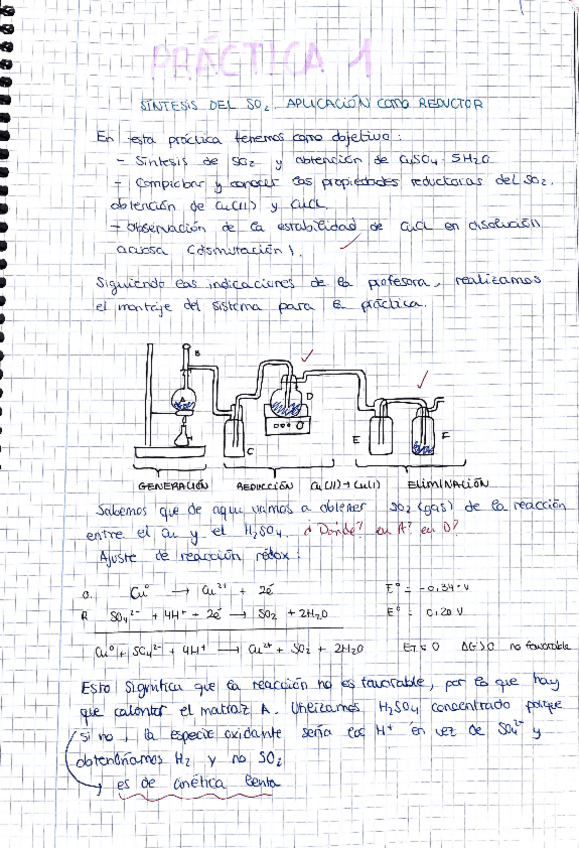 PRÁCTICA 1
SÍNTESIS DEL SO₂. APLICACIÓN COMO REDUCTOR
En esta práctica tenemos como objetivo:
- Síntesis de SO₂ y obtención de CuSO₄·5H₂O
- Comprobar y conocer las propiedades reductoras del SO₂.
obtención de Cu(II) y CuCl.
- Observación de la estabilidad de CuCl en disolución
acuosa (dismutación).
Siguiendo las indicaciones de la profesora, realizamos
el montaje del sistema para la práctica.
B
A
D
C
E
F
GENERACIÓN REDUCCIÓN Cu(II)→Cu(I) ELIMINACIÓN
Sabemos que de aquí vamos a obtener SO₂ (gas) de la reacción
entre el Cu y el H₂SO₄. ¿Dónde? en A? en D?
Ajuste de reacción rédox:
O. Cu⁰ → Cu²⁺ + 2e⁻ E⁰ = -0,34 V
R SO₄²⁻ + 4H⁺ + 2e⁻ → SO₂ + 2H₂O E⁰ = 0,20 V
Cu⁰ + SO₄²⁻ + 4H⁺ → Cu²⁺ + SO₂ + 2H₂O E_T < 0 ΔG>0 no favorable
Esto significa que la reacción no es favorable, por lo que hay
que calentar el matraz A. Utilizamos H₂SO₄ concentrado porque
si no, la especie oxidante sería los H⁺ en vez de SO₄²⁻ y
obtendríamos H₂ y no SO₂
es de cinética lenta